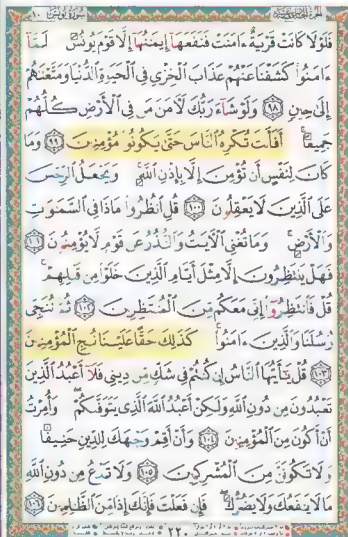 فَلَوْلَا كَانَتْ قَرْيَةٌ ءَامَنَتْ فَنَفَعَهَا إِيمَٰنُهَا إِلَّا قَوْمَ يُونُسَ لَمَّا
ءَامَنُوا كَشَفْنَا عَنْهُمْ عَذَابَ الْخِزْيِ فِي الْحَيَوٰةِ الدُّنْيَا وَمَتَّعْنَٰهُمْ
إِلَىٰ حِينٍ ٩٨ وَلَوْ شَاءَ رَبُّكَ لَآمَنَ مَن فِي الْأَرْضِ كُلُّهُمْ
جَمِيعًا أَفَأَنتَ تُكْرِهُ النَّاسَ حَتَّىٰ يَكُونُوا مُؤْمِنِينَ ٩٩ وَمَا
كَانَ لِنَفْسٍ أَن تُؤْمِنَ إِلَّا بِإِذْنِ اللَّهِ وَيَجْعَلُ الرِّجْسَ
عَلَى الَّذِينَ لَا يَعْقِلُونَ ١٠٠ قُلِ انظُرُوا مَاذَا فِي السَّمَٰوَٰتِ
وَالْأَرْضِ وَمَا تُغْنِي الْآيَٰتُ وَالنُّذُرُ عَن قَوْمٍ لَّا يُؤْمِنُونَ ١٠١
فَهَلْ يَنتَظِرُونَ إِلَّا مِثْلَ أَيَّامِ الَّذِينَ خَلَوْا مِن قَبْلِهِمْ
قُلْ فَانتَظِرُوا إِنِّي مَعَكُم مِّنَ الْمُنتَظِرِينَ ١٠٢ ثُمَّ نُنَجِّي
رُسُلَنَا وَالَّذِينَ ءَامَنُوا كَذَٰلِكَ حَقًّا عَلَيْنَا نُنجِ الْمُؤْمِنِينَ
١٠٣ قُلْ يَٰأَيُّهَا النَّاسُ إِن كُنتُمْ فِي شَكٍّ مِّن دِينِي فَلَا أَعْبُدُ الَّذِينَ
تَعْبُدُونَ مِن دُونِ اللَّهِ وَلَٰكِنْ أَعْبُدُ اللَّهَ الَّذِي يَتَوَفَّىٰكُمْ وَأُمِرْتُ
أَنْ أَكُونَ مِنَ الْمُؤْمِنِينَ ١٠٤ وَأَنْ أَقِمْ وَجْهَكَ لِلدِّينِ حَنِيفًا
وَلَا تَكُونَنَّ مِنَ الْمُشْرِكِينَ ١٠٥ وَلَا تَدْعُ مِن دُونِ اللَّهِ
مَا لَا يَنفَعُكَ وَلَا يَضُرُّكَ فَإِن فَعَلْتَ فَإِنَّكَ إِذًا مِّنَ الظَّٰلِمِينَ ١٠٦
٢٢٠